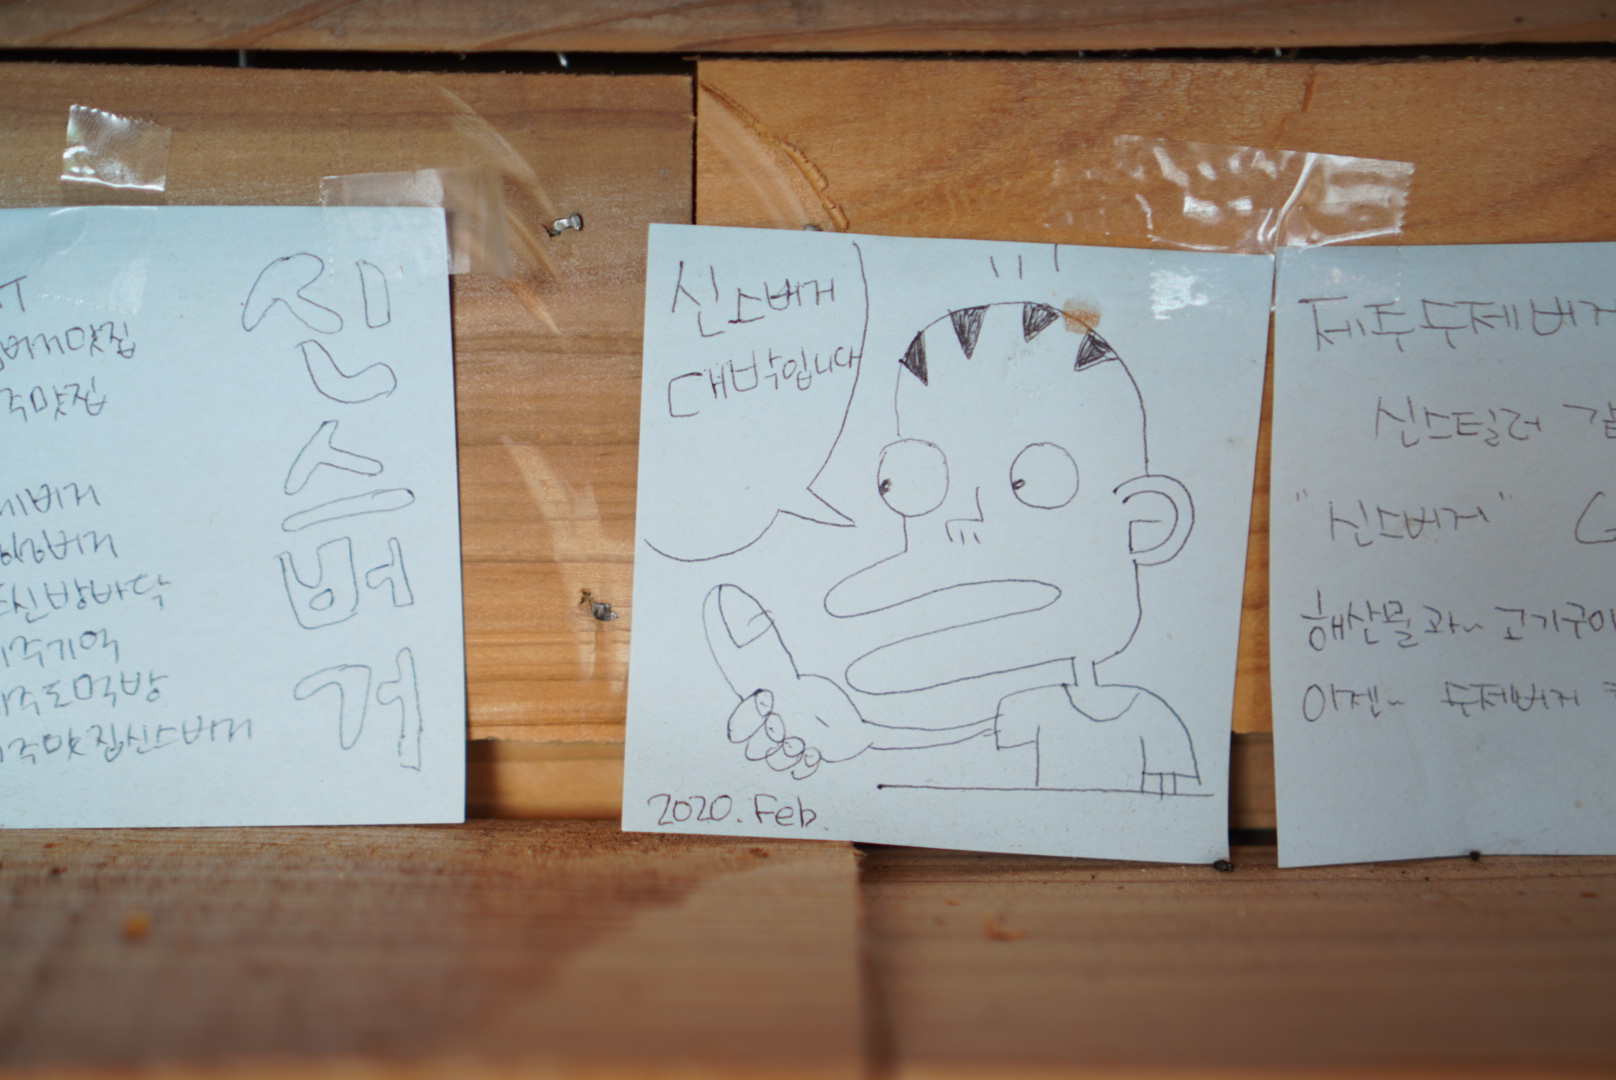 맛집
주맛집
버거
버거
신방바닥
주기억
주도먹방
주맛집신스버거
신
스
버
거
신스버거
대박입니다
2020. Feb.
제주수제버거
신스틸러
"신스버거"
해산물과~ 고기구이
이젠~ 수제버거